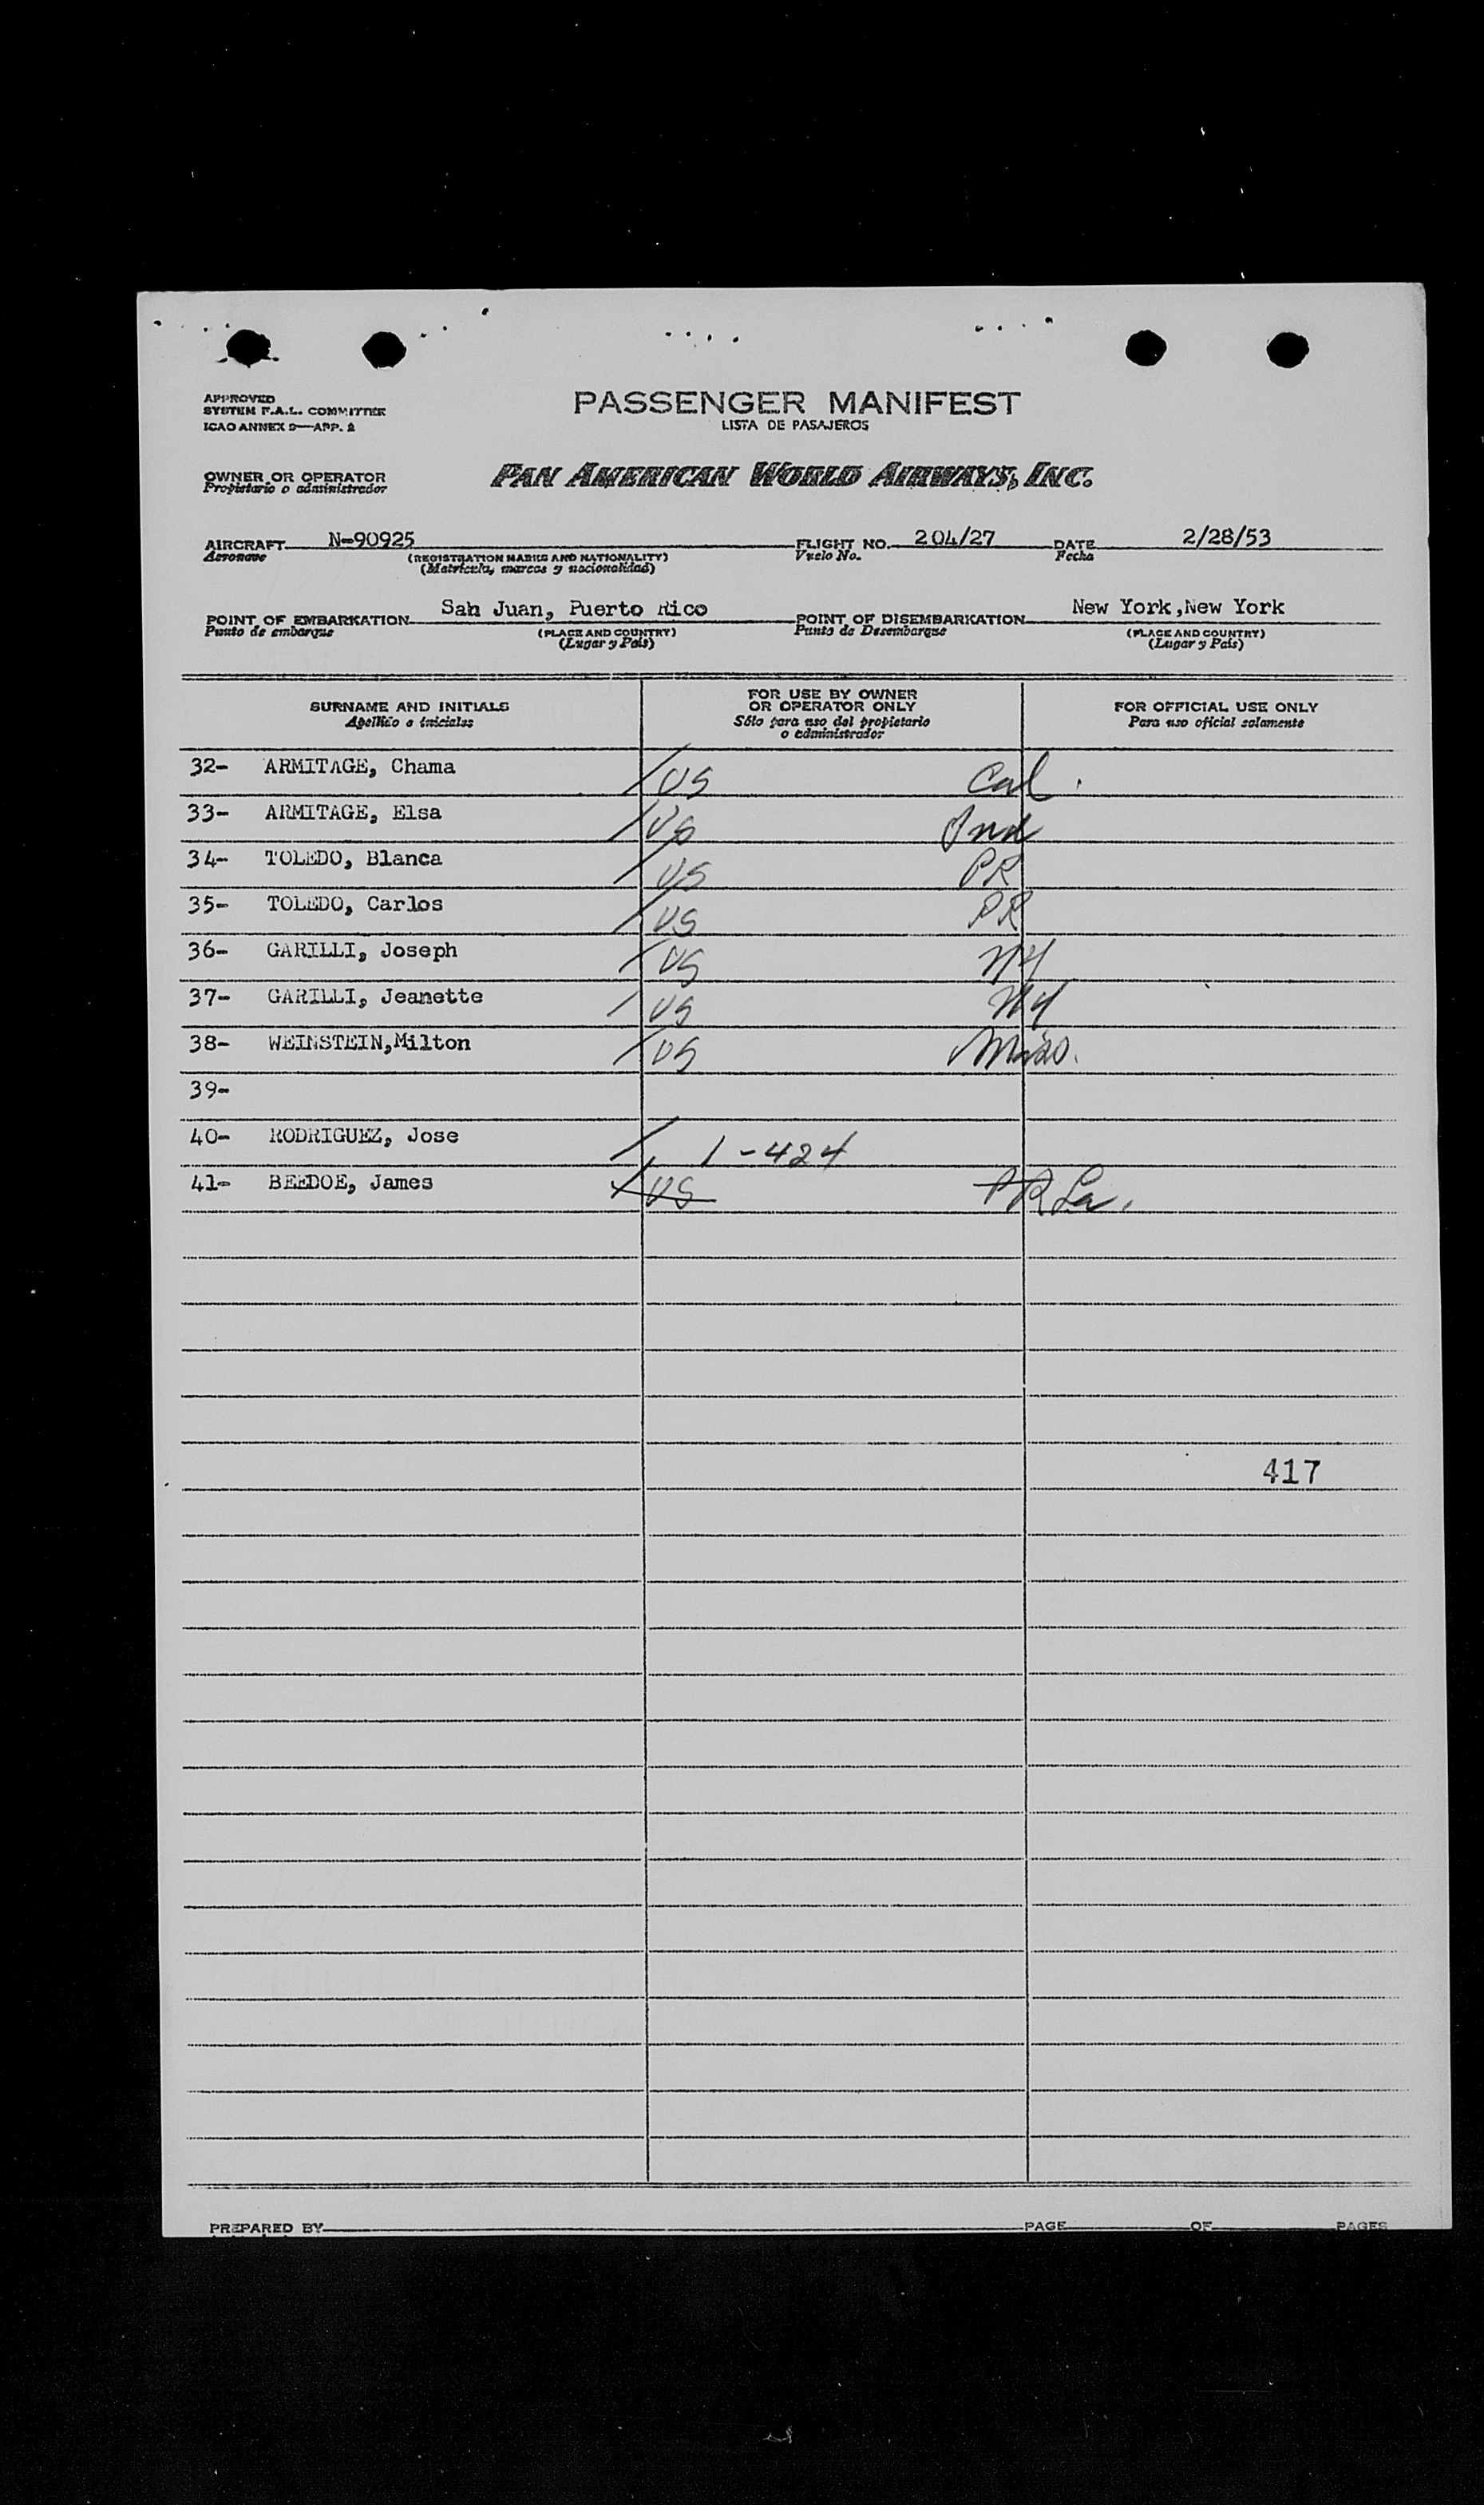 APPROVED
SYSTEM F.A.L. COMMITTEE
ICAO ANNEX 9—APP. 2
PASSENGER MANIFEST
LISTA DE PASAJEROS
OWNER OR OPERATOR
Propietario o administrador
PAN AMERICAN WORLD AIRWAYS, INC.
AIRCRAFT N-90925 FLIGHT NO. 204/27 DATE 2/28/53
Aeronave (REGISTRATION MARKS AND NATIONALITY) Vuelo No. Fecha
(Matrícula, marcas y nacionalidad)
POINT OF EMBARKATION San Juan, Puerto Rico POINT OF DISEMBARKATION New York,New York
Punto de embarque (PLACE AND COUNTRY) Punto de Desembarque (PLACE AND COUNTRY)
(Lugar y País) (Lugar y País)
SURNAME AND INITIALS
Apellido e iniciales
FOR USE BY OWNER
OR OPERATOR ONLY
Sólo para uso del propietario
o administrador
FOR OFFICIAL USE ONLY
Para uso oficial solamente
32- ARMITAGE, Chama / US Cal.
33- ARMITAGE, Elsa / US Ind
34- TOLEDO, Blanca / US PR
35- TOLEDO, Carlos / US PR
36- GARILLI, Joseph / US NY
37- GARILLI, Jeanette / US NY
38- WEINSTEIN,Milton / US Mass.
39-
40- RODRIGUEZ, Jose / 1-424
41- BEEDOE, James / US PR La.
417
PREPARED BY PAGE OF PAGES